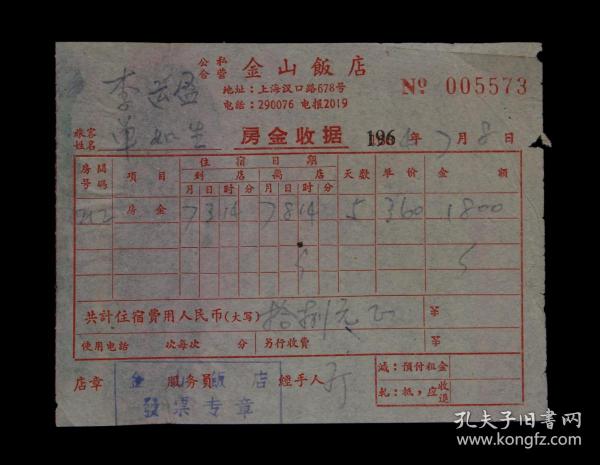 公私合营 金山飯店
地址：上海汉口路678号
电话：290076 电报2019
№ 005573
旅客姓名 李 单如生
房金收据 196 年 7 月 8 日
房間号碼 項目 住宿日期 到店 离店 天数 单价 金額
月 日 时 分 月 日 时 分
212 房金 7 3 14 7 8 14 5 360 1800
共計住宿費用人民币(大写) 拾捌元正 第
使用电話 次每次 分 另行收費 第
店章 服务員 經手人
减：預付租金
軋：抵，应收退
金山飯店
發票专章
孔夫子旧书网
www.kongfz.com